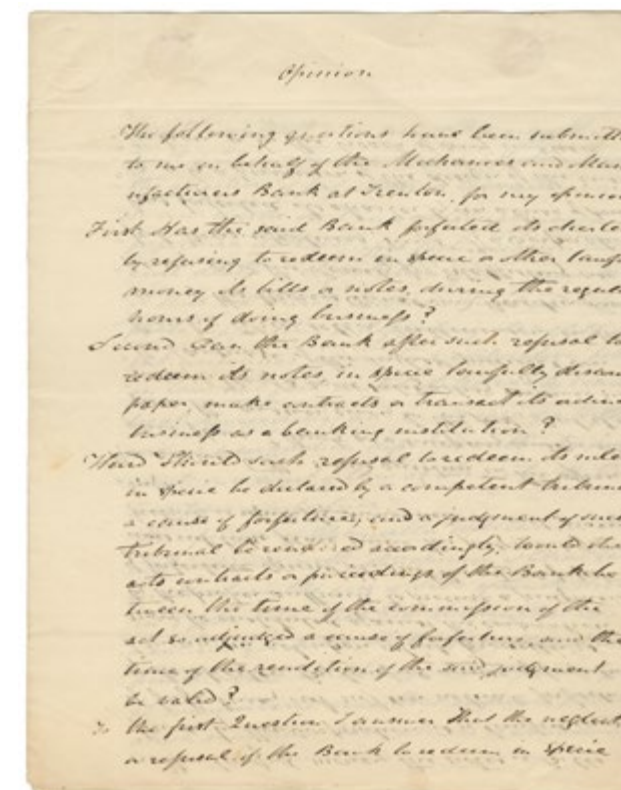 Opinion
The following questions have been submitt
to me on behalf of the Mechanics and Man
ufacturers Bank at Trenton, for my opinion
First Has the said Bank forfeited its charte
by refusing to redeem in specie or other lawf
money its bills or notes, during the regul
hours of doing business?
Second Can the Bank after such refusal to
redeem its notes in specie lawfully discou
paper, make contracts or transact its ordin
business as a banking institution?
Third Should such refusal to redeem its notes
in specie be declared by a competent tribun
a cause of forfeiture, and a judgment of such
tribunal be rendered accordingly, would the
acts contracts or proceedings of the Bank be
tween the time of the commission of the
act so adjudged a cause of forfeiture, and the
time of the rendition of the said judgment
be valid?
To the first Question I answer that the neglect
or refusal of the Bank to redeem in specie